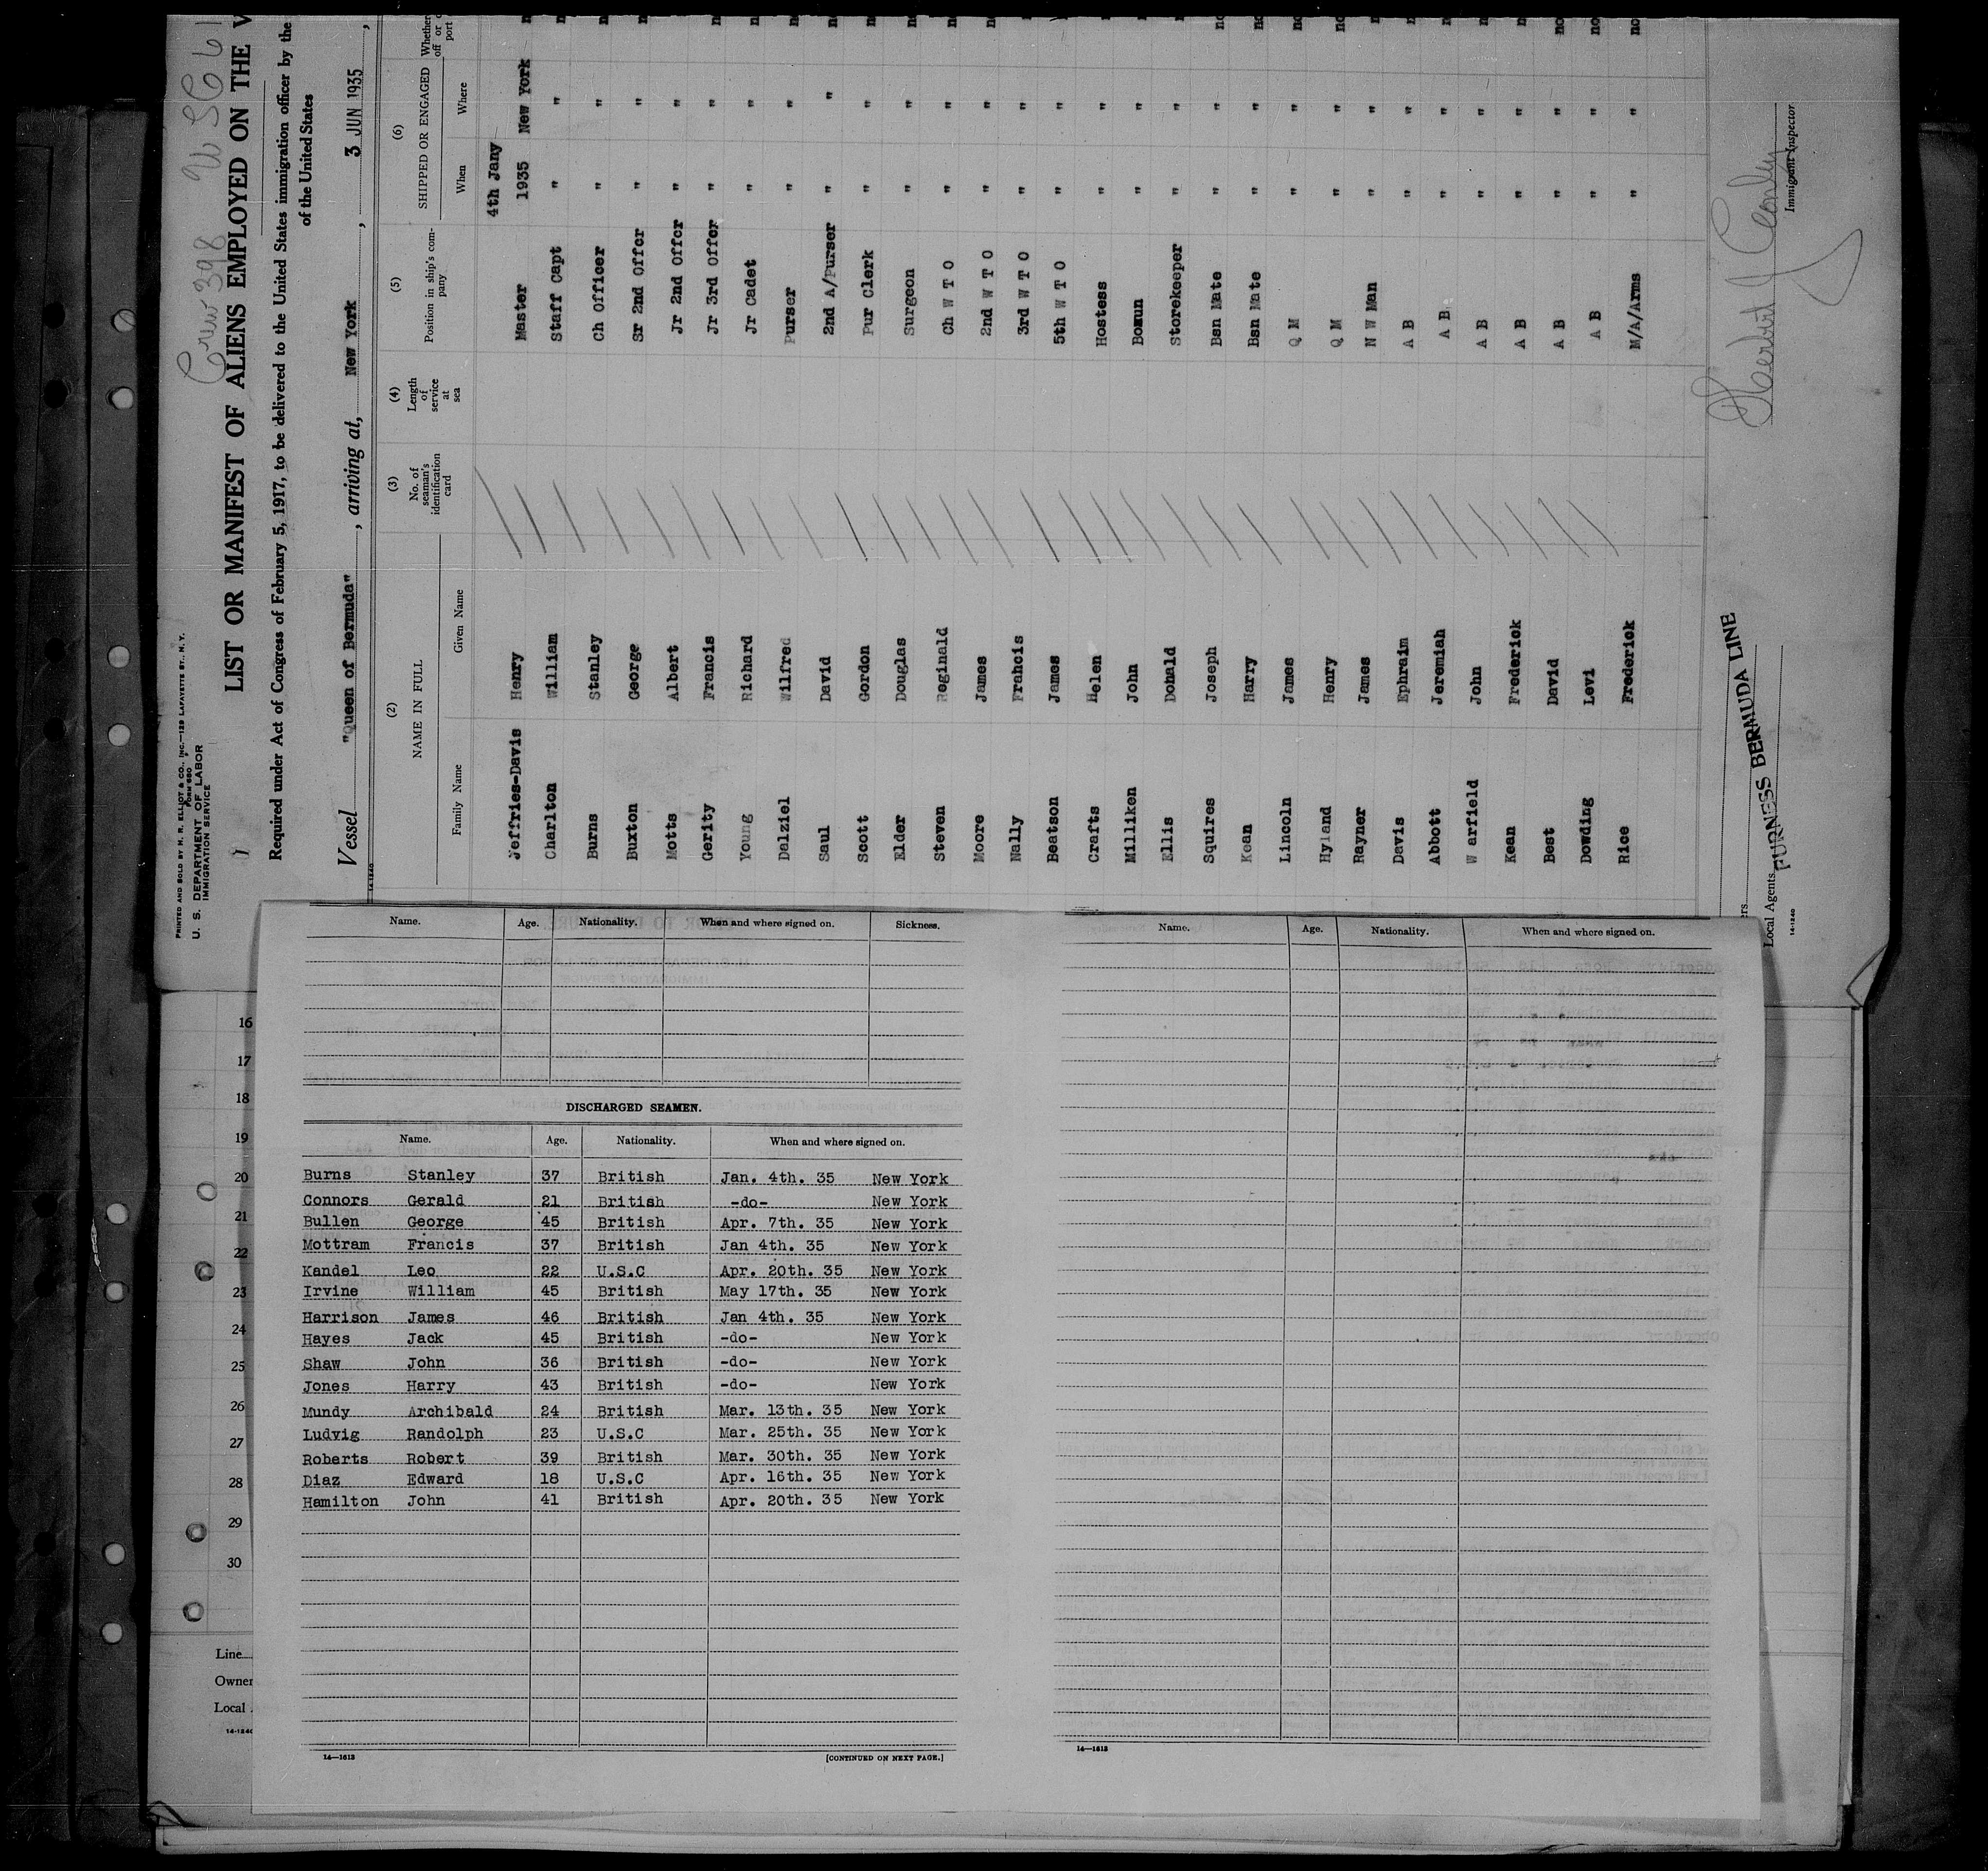 Crew 398 USC 61
PRINTED AND SOLD BY H. R. ELLIOT & CO., INC.—129 LAFAYETTE ST., N. Y.
FORM 680
U. S. DEPARTMENT OF LABOR
IMMIGRATION SERVICE
LIST OR MANIFEST OF ALIENS EMPLOYED ON THE V
Required under Act of Congress of February 5, 1917, to be delivered to the United States immigration officer by the
of the United States
Vessel "Queen of Bermuda", arriving at, New York, 3 JUN 1935,
14-1240
(2) (3) (4) (5) (6)
NAME IN FULL No. of seaman's identification card Length of service at sea Position in ship's company SHIPPED OR ENGAGED
Family Name Given Name When Where
4th Jany
Jeffries-Davis Henry Master 1935 New York
Charlton William Staff Capt " "
Burns Stanley Ch Officer " "
Buxton George Sr 2nd Offcr " "
Motts Albert Jr 2nd Offcr " "
Gerity Francis Jr 3rd Offcr " "
Young Richard Jr Cadet " "
Dalziel Wilfred Purser " "
Saul David 2nd A/Purser " "
Scott Gordon Pur Clerk " "
Elder Douglas Surgeon " "
Steven Reginald Ch W T O " "
Moore James 2nd W T O " "
Nally Francis 3rd W T O " "
Beatson James 5th W T O " "
Crafts Helen Hostess " "
Milliken John Bosun " "
Ellis Donald Storekeeper " "
Squires Joseph Bsn Mate " " no
Kean Harry Bsn Mate " " no
Lincoln James Q M " " no
Hyland Henry Q M " " no
Rayner James N W Man " "
Davis Ephraim A B " "
Abbott Jeremiah A B " "
W arfield John A B " "
Kean Frederick A B " "
Best David A B " " no
Dowding Levi A B " " no
Rice Frederick M/A/Arms " " no
Local Agents FURNESS BERMUDA LINE
14-1240
Herbert J Conly
Immigrant Inspector
Name. Age. Nationality. When and where signed on. Sickness.
DISCHARGED SEAMEN.
Name. Age. Nationality. When and where signed on.
Burns Stanley 37 British Jan. 4th. 35 New York
Connors Gerald 21 British -do- New York
Bullen George 45 British Apr. 7th. 35 New York
Mottram Francis 37 British Jan 4th. 35 New York
Kandel Leo 22 U.S.C Apr. 20th. 35 New York
Irvine William 45 British May 17th. 35 New York
Harrison James 46 British Jan 4th. 35 New York
Hayes Jack 45 British -do- New York
Shaw John 36 British -do- New York
Jones Harry 43 British -do- New York
Mundy Archibald 24 British Mar. 13th. 35 New York
Ludvig Randolph 23 U.S.C Mar. 25th. 35 New York
Roberts Robert 39 British Mar. 30th. 35 New York
Diaz Edward 18 U.S.C Apr. 16th. 35 New York
Hamilton John 41 British Apr. 20th. 35 New York
14—1613 [CONTINUED ON NEXT PAGE.]
Name. Age. Nationality. When and where signed on.
14—1613
16
17
18
19
20
21
22
23
24
25
26
27
28
29
30
Line
Owner
Local
14-1240